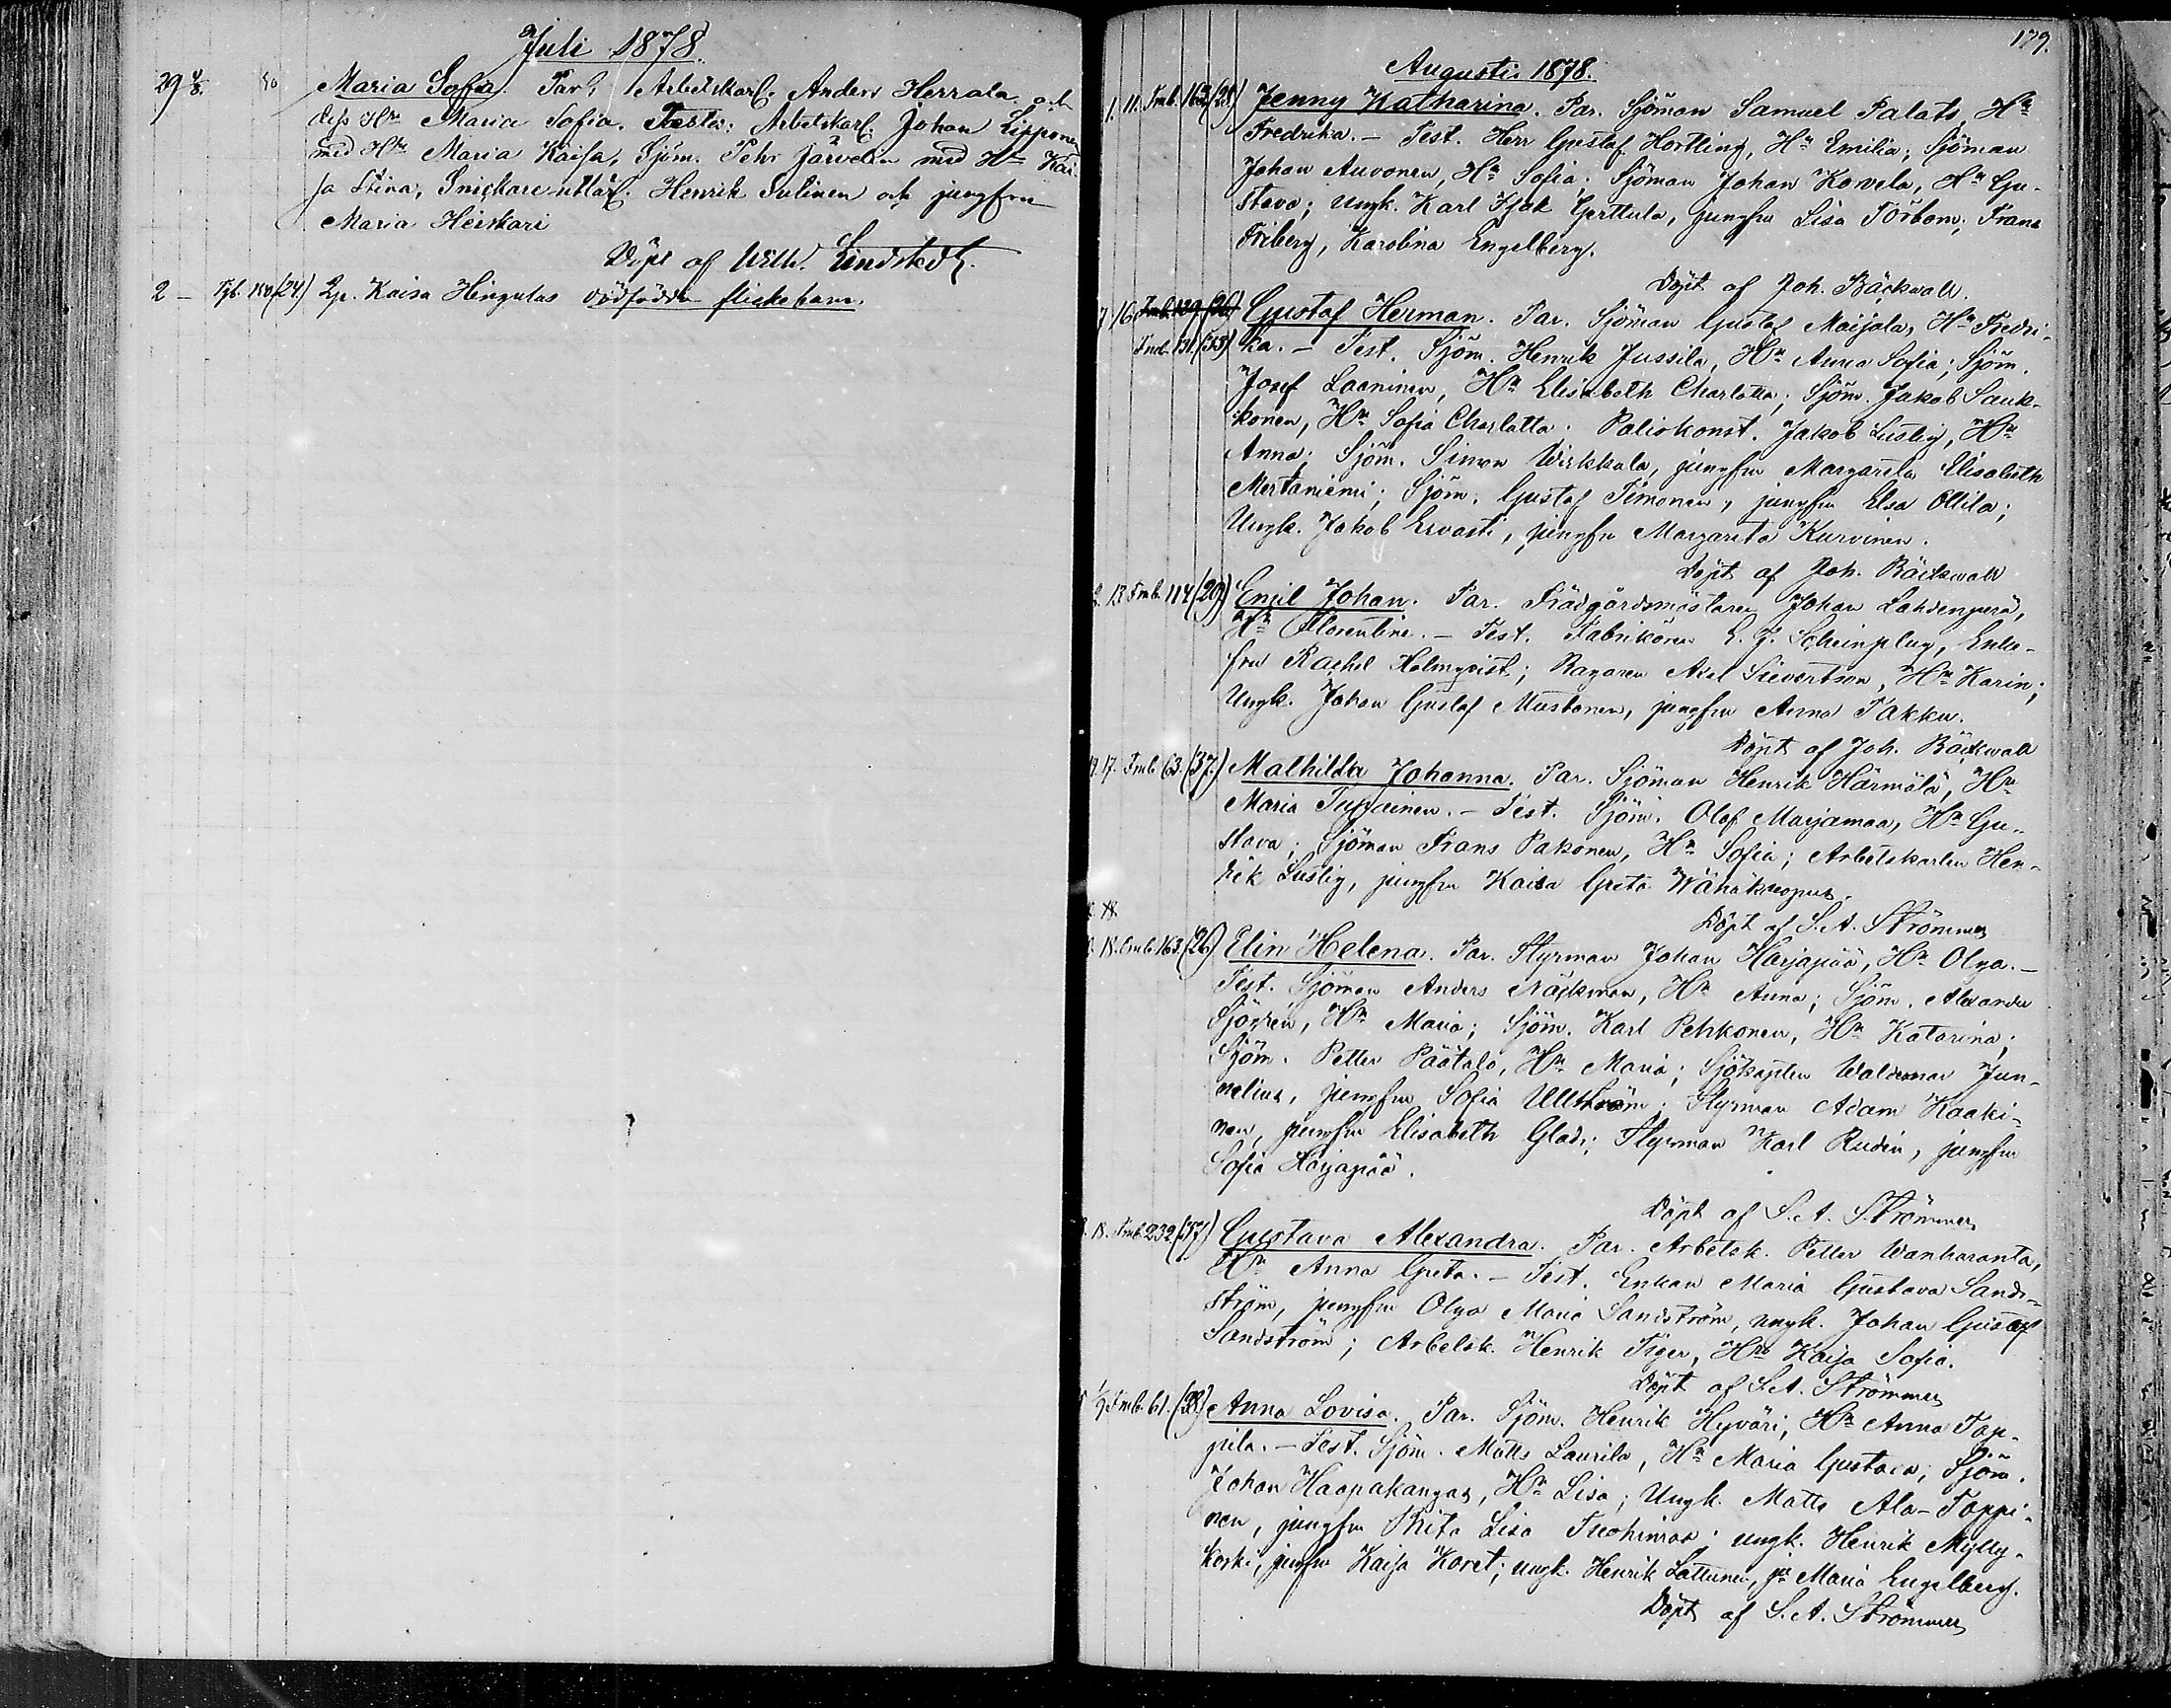 Juli 1878.
29 4/8. 50 Maria Sofia. Par: Arbetskarl. Anders Herrala och
dess Hu Maria Sofia. Testes: Arbetskarl. Johan Lipponen
med Hu Maria Kaisa, Sjöm. Pehr Järvelin med Hu Kai-
sa Stina, Snickare Henrik Sutinen och jungfru
Maria Heiskari
Döpt af Wilh. Lindstedt.
2 – 150 (24) Kaisa Hingulas dödfödda flickebarn.
179.
Augusti 1878.
1. 11. Fmb. 163 (28) Jenny Katharina. Par. Sjöman Samuel Palats, Hu
Fredrika. – Test. Herr Gustaf Hortling, Hu Emilia; Sjöman
Johan Auvonen, Hu Sofia; Sjöman Johan Korvela, Hu Gu-
stava; Ungk. Karl Isak Gerttula, jungfru Lisa Törbom; Frans
Friberg, Karolina Engelberg.
Döpt af Joh. Bäckwall.
7. 16. Fmb. 139 (26) Gustaf Herman. Par. Sjöman Gustaf Maijala, Hu Fredri-
Fmb. 131. (33) ka. – Test. Sjöm. Henrik Jussila, Hu Anna Sofia; Sjöm.
Josef Laaninen, Hu Elisabeth Charlotta; Sjöm. Jakob Sauk-
konen, Hu Sofia Charlotta. Poliskonst. Jakob Lustig, Hu
Anna; Sjöm. Simon Wirkkala, jungfru Margareta Elisabeth
Mertaniemi; Sjöm. Gustaf Timonen, jungfru Elsa Ollila;
Ungk. Jakob Ervasti, jungfru Margareta Kurvinen.
Döpt af Joh. Bäckwall
2. 13. Fmb. 114 (29) Emil Johan. Par. Trädgårdsmästaren Johan Lahdenperä,
Hu Florentine. – Test. Fabrikören E. J. Scheinpflug, Enke-
fru Rachel Holmqvist; Bagaren Axel Sievertson, Hu Karin;
Ungk. Johan Gustaf Mustonen, jungfru Anna Takku.
Döpt af Joh. Bäckwall
9. 17. Fmb. 63. (37.) Mathilda Johanna. Par. Sjöman Henrik Härmälä, Hu
Maria. – Test. Sjöm. Olof Marjamaa, Hu Gu-
stava; Sjöman Frans Pakonen, Hu Sofia; Arbetskarlen Hen-
rik Lustig, jungfru Kaisa Greta Wähäkuopus.
18.
Döpt af S. A. Strömmer
18. Fmb. 163. (26) Elin Helena. Par. Styrman Johan Harjapää, Hu Olga. –
Test. Sjöman Anders Näckman, Hu Anna; Sjöm. Alexander
Sjögren, Hu Maria; Sjöm. Karl Pehkonen, Hu Katarina;
Sjöm. Petter Päätalo, Hu Maria; Sjökapten Waldemar Jun-
nelius, jungfru Sofia Ullström; Styrman Adam Kaaki-
nen, jungfru Elisabeth Glad; Styrman Karl Rudin, jungfru
Sofia Harjapää.
Döpt af S. A. Strömmer
18. Fmb. 232 (37) Gustava Alexandra. Par. Arbetsk. Petter Wanharanta,
Hu Anna Greta. – Test. Enkan Maria Gustava Sand-
ström, jungfru Olga Maria Sandström, ungk. Johan Gustaf
Sandström; Arbetsk. Henrik Tiger, Hu Kaisa Sofia.
Döpt af S. A. Strömmer
1/9 Fmb. 61. (38) Anna Lovisa. Par. Sjöm. Henrik Hyväri, Hu Anna Top-
pila. – Test. Sjöm. Matts Laurila, Hu Maria Gustava; Sjöm.
Johan Haapakangas, Hu Lisa; Ungk. Matts Ala-Toppi-
nen, jungfru Brita Lisa; ungk. Henrik Mylly-
koski, jungfru Kaisa Koret; ungk. Henrik Lattunen, ju Maria Engelberg.
Döpt af S. A. Strömmer